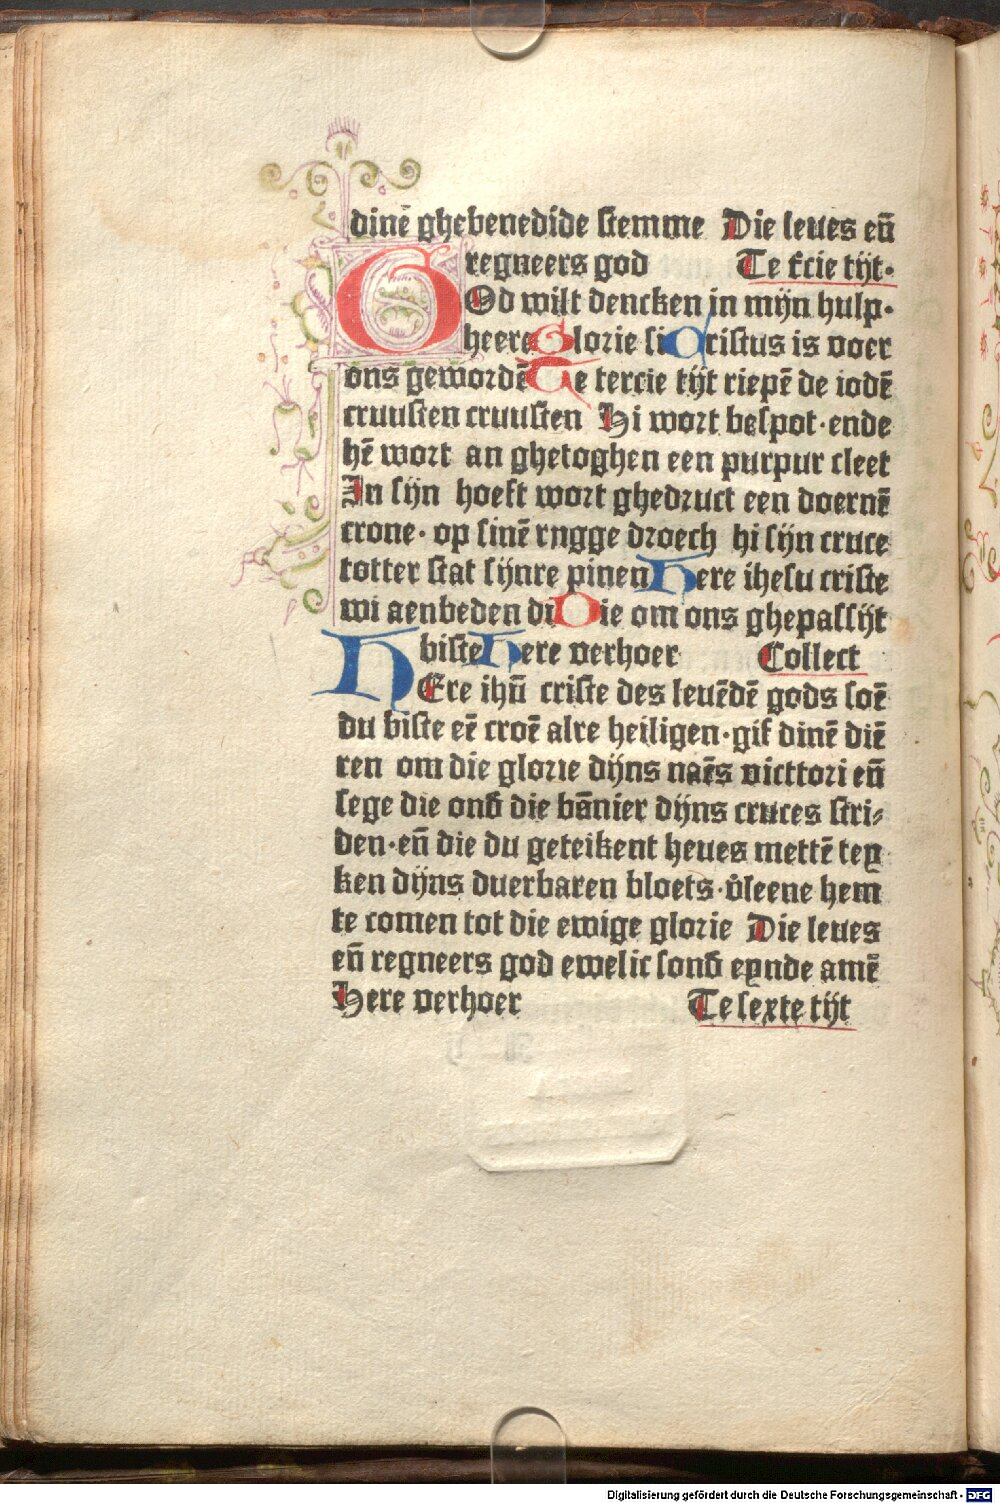 dinē ghebenedide stemme Die leues eñ
regneers god Te t̄cie tijt·
GOd wilt dencken in mijn hulp·
heere Glorie si Cristus is voer
ons gewordē Te tercie tijt riepē de iodē
cruusten cruusten Hi wort bespot·ende
hē wort an ghetoghen een purpur cleet
In sijn hoeft wort ghedruct een doernē
crone· op sinē rngge droech hi sijn cruce
totter stat sijnre pinen Here ihesu criste
wi aenbeden di Die om ons ghepassijt
biste Here verhoer Collect
HEre ihū criste des leuēdē gods soē
du biste eē croē alre heiligen·gif dinē diē
ren om die glorie dijns naēs victtori eñ
sege die onđ die bānier dijns cruces stri⸗
den·eñ die du geteikent heues mettē tey
ken dijns duerbaren bloets·v̄leene hem
te comen tot die ewige glorie Die leues
eñ regneers god ewelic sonđ eynde amē
Here verhoer Te sexte tijt
Digitalisierung gefördert durch die Deutsche Forschungsgemeinschaft - DFG